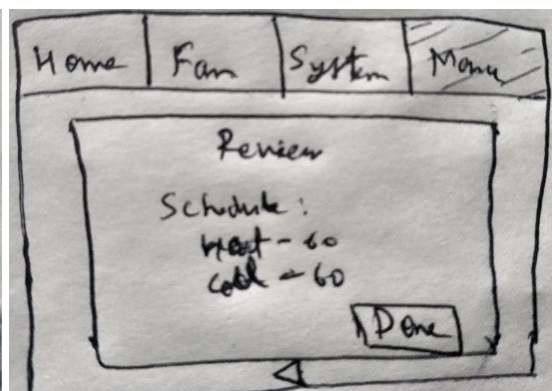 Home Fan System Menu
Review
Schedule:
Heat - 60
Cool - 60
Done